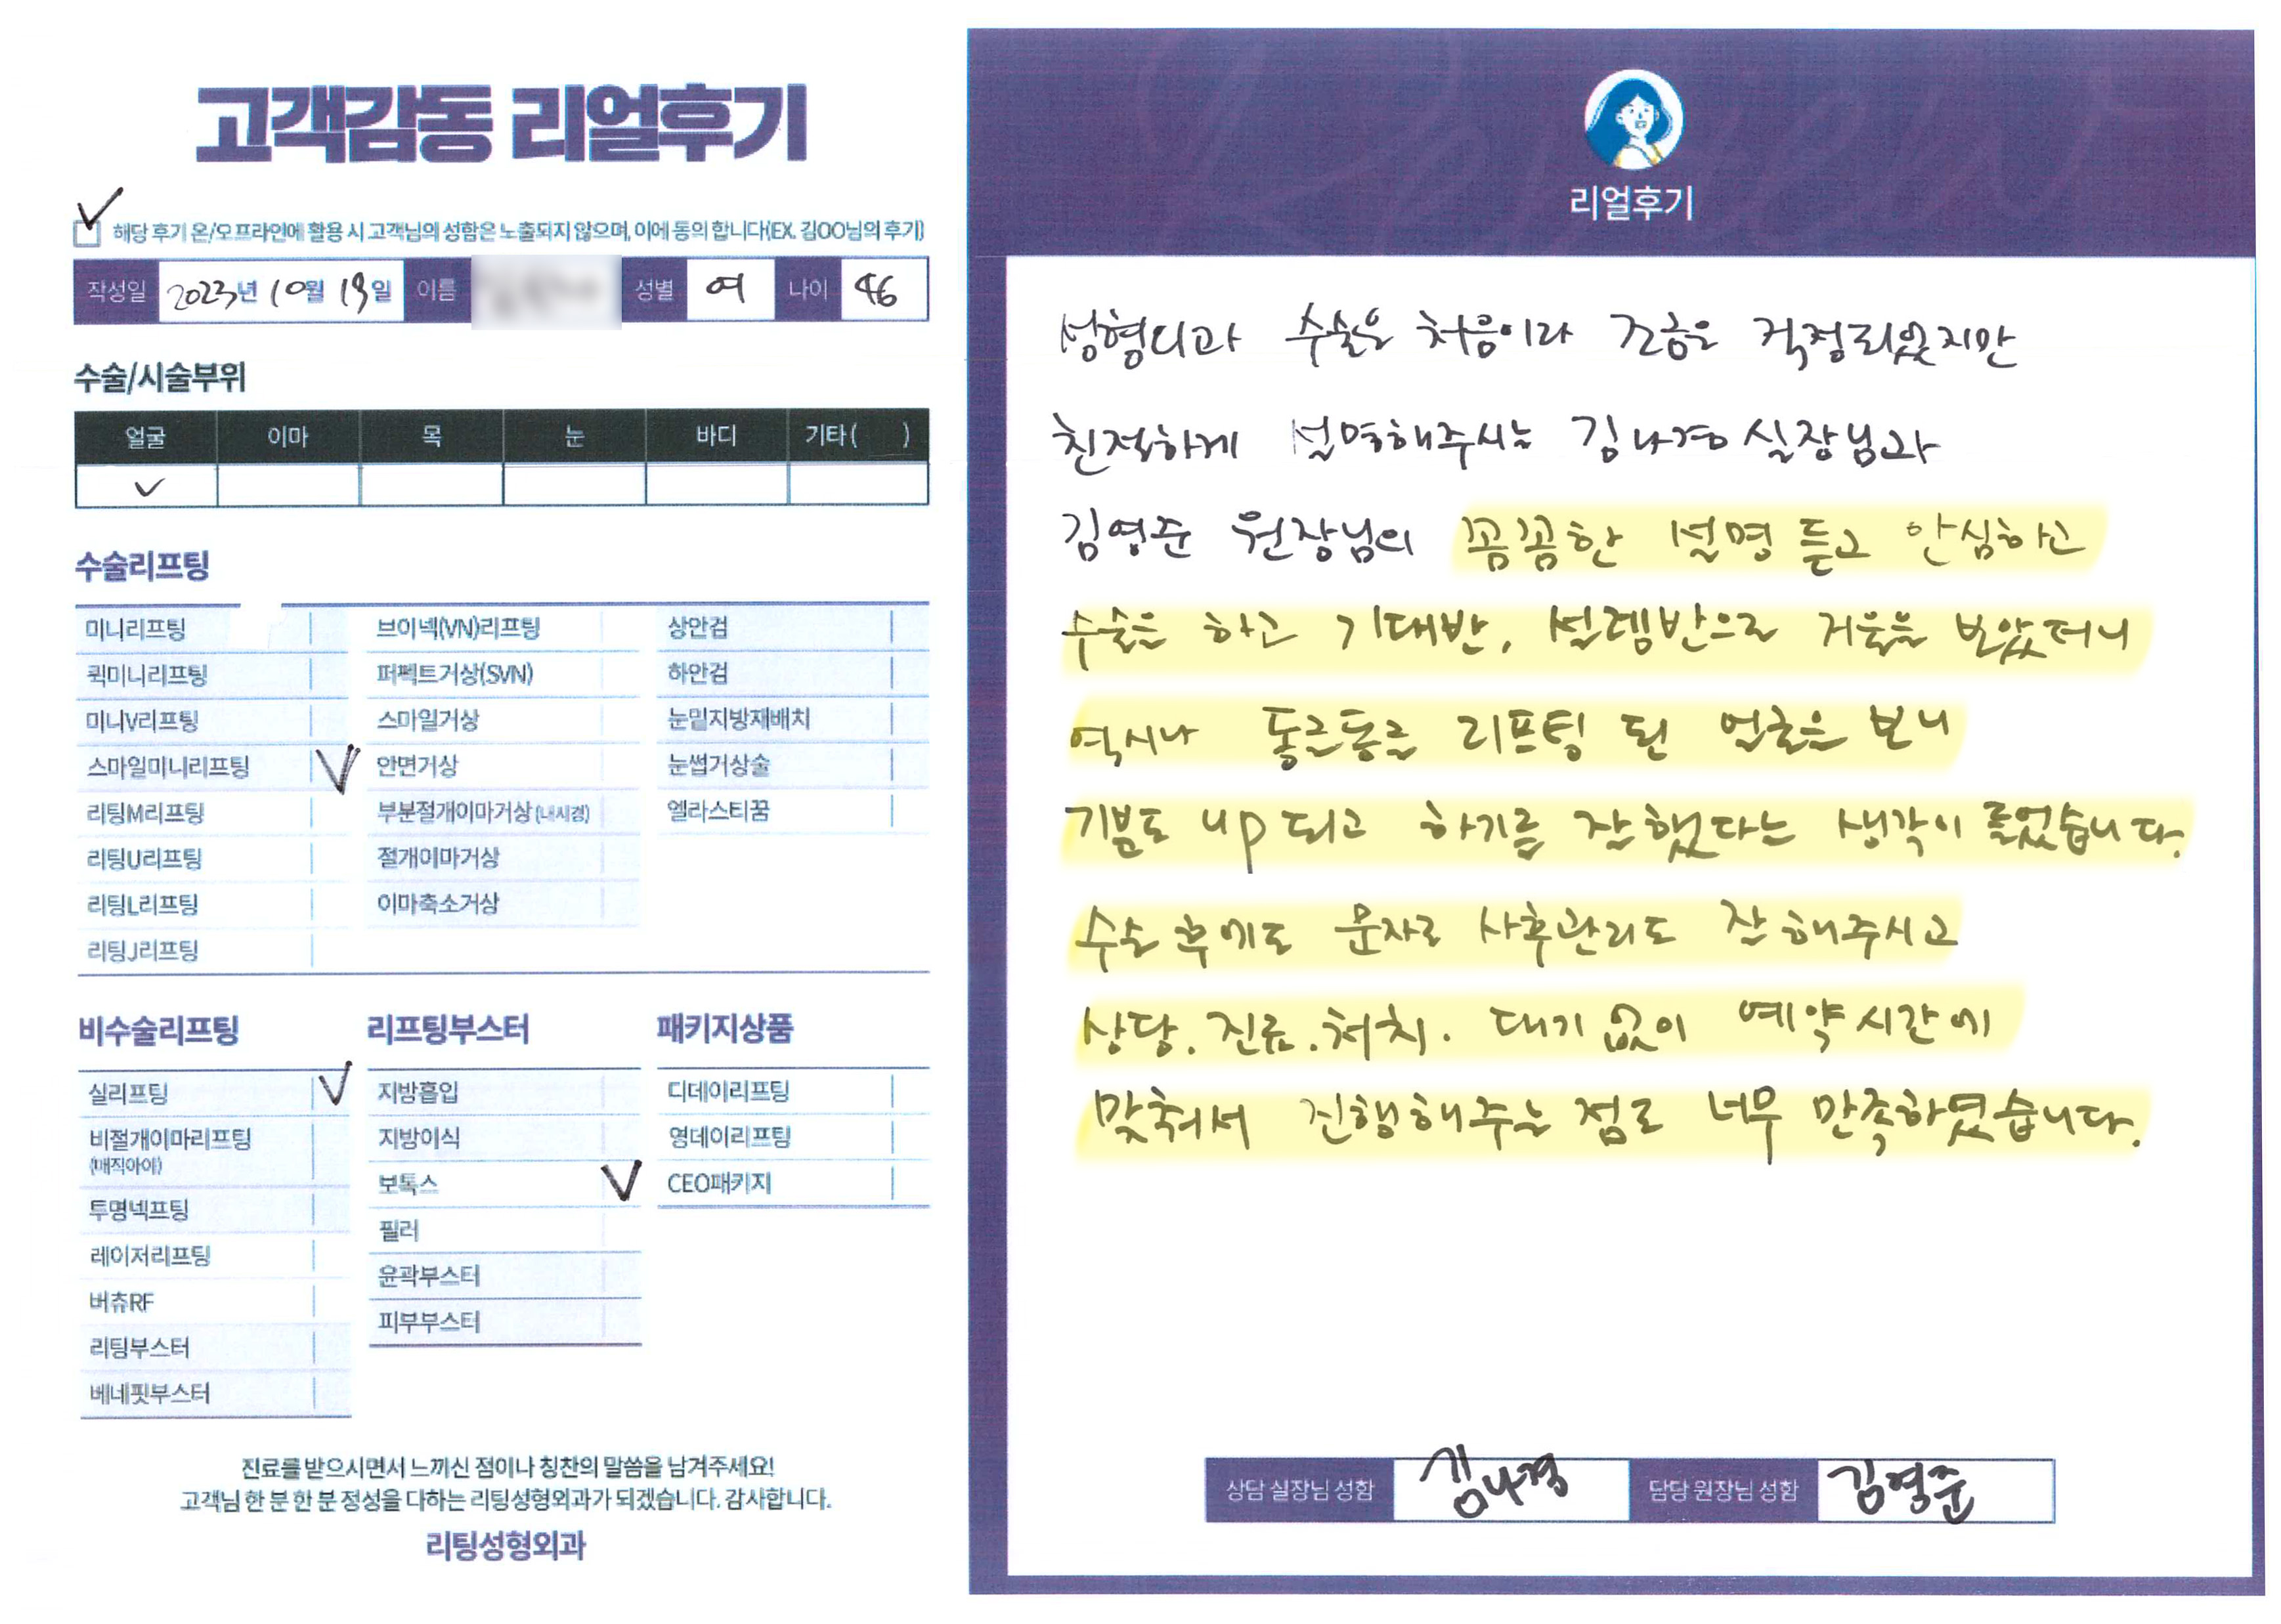 고객감동 리얼후기
해당 후기 온/오프라인에 활용 시 고객님의 성함은 노출되지 않으며, 이에 동의 합니다(EX. 김OO님의 후기)
작성일 2023년 10월 19일 이름 성별 여 나이 46
수술/시술부위
얼굴 이마 목 눈 바디 기타( )
수술리프팅
미니리프팅 브이넥(VN)리프팅 상안검
퀵미니리프팅 퍼펙트거상(SVN) 하안검
미니V리프팅 스마일거상 눈밑지방재배치
스마일미니리프팅 안면거상 눈썹거상술
리팅M리프팅 부분절개이마거상(내시경) 엘라스티꿈
리팅U리프팅 절개이마거상
리팅L리프팅 이마축소거상
리팅J리프팅
비수술리프팅 리프팅부스터 패키지상품
실리프팅 지방흡입 디데이리프팅
비절개이마리프팅 지방이식 영데이리프팅
(매직아이)
보톡스 CEO패키지
투명넥프팅 필러
레이저리프팅 윤곽부스터
버츄RF 피부부스터
리팅부스터
베네핏부스터
진료를 받으시면서 느끼신 점이나 칭찬의 말씀을 남겨주세요!
고객님 한 분 한 분 정성을 다하는 리팅성형외과가 되겠습니다. 감사합니다.
리팅성형외과
리얼후기
성형외과 수술은 처음이라 조금은 걱정되었지만
친절하게 설명해주시는 김나경 실장님과
김영준 원장님의 꼼꼼한 설명 듣고 안심하고
수술을 하고 기대반, 설렘반으로 거울을 보았더니
역시나 동글동글 리프팅 된 얼굴을 보니
기분도 up 되고 하기를 잘했다는 생각이 들었습니다.
수술 후에도 문자로 사후관리도 잘 해주시고
상담. 진료. 처치. 대기 없이 예약시간에
맞춰서 진행해주는 점도 너무 만족하였습니다.
상담 실장님 성함 김나경 담당 원장님 성함 김영준